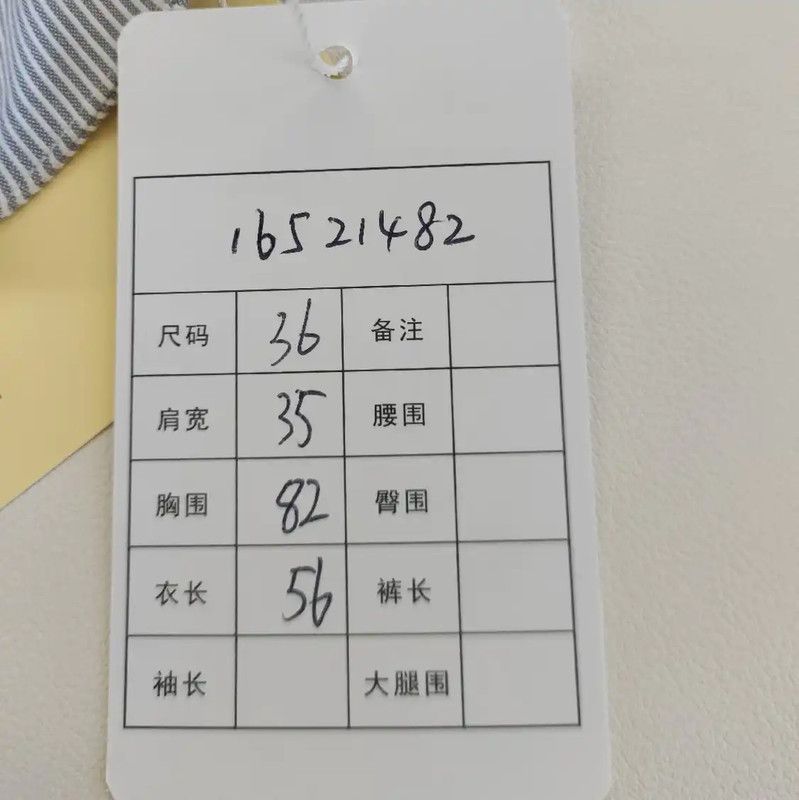 16521482
尺码 36 备注
肩宽 35 腰围
胸围 82 臀围
衣长 56 裤长
袖长 大腿围